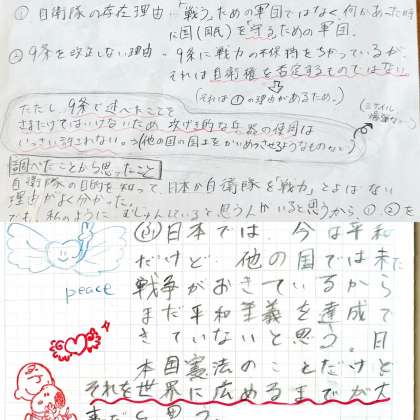 ① 自衛隊の存在理由…「戦う」ための軍団ではなく何かあった時
に国(国民)を「守る」ための軍団.
② 9条を改正しない理由・9条に戦力の不保持をちかっているが
それは自衛権を否定するものではない
(それは①の理由があるため。)
ただし、9条で述べたことを
さまたげてはいけないため 攻げき的な兵器の使用は
いっさい許されない。→(他の国の国土をかいめつさせるようなものなど)
(ミサイル
爆弾など…)
調べたことから思ったこと
自衛隊の目的を知って、日本が自衛隊を「戦力」とよばない
理由がよく分かった。
です。私のように むじゅんしていると思う人がいると思うから、①、②を
peace
日本では、今は平和
だけど、他の国では未だ
戦争がおきているから
まだ平和主義を達成で
きていないと思う。日
本国憲法のことだけど
それを世界に広めるまでが大
事だと思う。